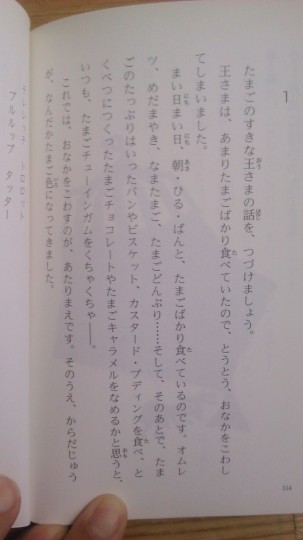 1
たまごのすきな王さまの話を、つづけましょう。
王さまは、あまりたまごばかり食べていたので、とうとう、おなかをこわし
てしまいました。
まい日まい日、朝・ひる・ばんと、たまごばかり食べているのです。オムレ
ツ、めだまやき、なまたまご、たまごどんぶり……そして、そのあとで、たま
ごのたっぷりはいったパンやビスケット、カスタード・プディングを食べ、と
くべつにつくったたまごチョコレートやたまごキャラメルをなめるかと思うと、
いつも、たまごチューインガムをくちゃくちゃ――。
これでは、おなかをこわすのが、あたりまえです。そのうえ、からだじゅう
が、なんだかたまご色になってきました。
プルルップ タッター